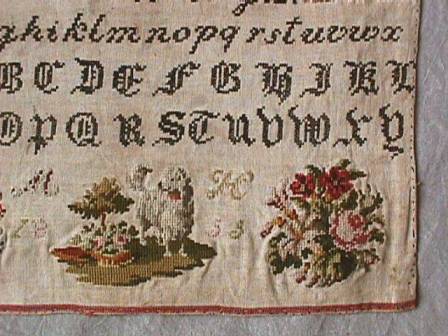 ghiklmnopqrstuvwx
BCDEFGHIJKL
OPQRSTUVWXY
M H